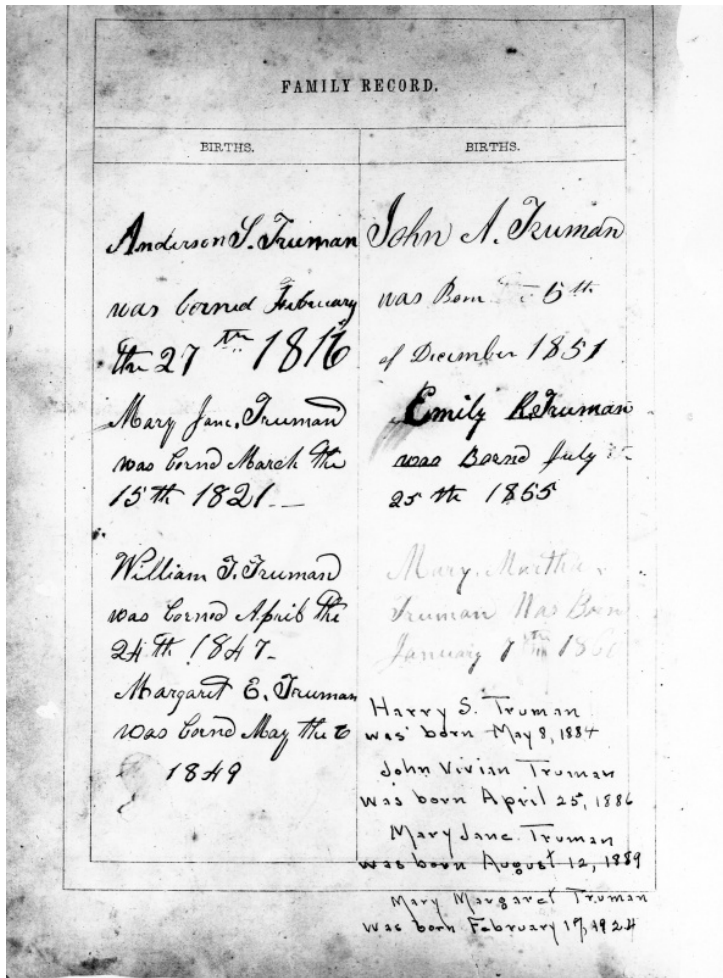 FAMILY RECORD.
BIRTHS.
Anderson S. Truman
was borned February
the 27th 1816
Mary Jane. Truman
was bornd March the
15th 1821
William T. Truman
was borned April the
24th 1847
Margaret E. Truman
was bornd May the
1849
BIRTHS.
John A. Truman
was Born 5th
of December 1851
Emily R. Truman
was Bornd July
25th 1855
Mary. Martha
Truman Was Born
January
Harry S. Truman
was born May 8, 1884
John Vivian Truman
was born April 25, 1886
Mary Jane Truman
was born August 12, 1889
Mary Margaret Truman
was born February 17, 1924